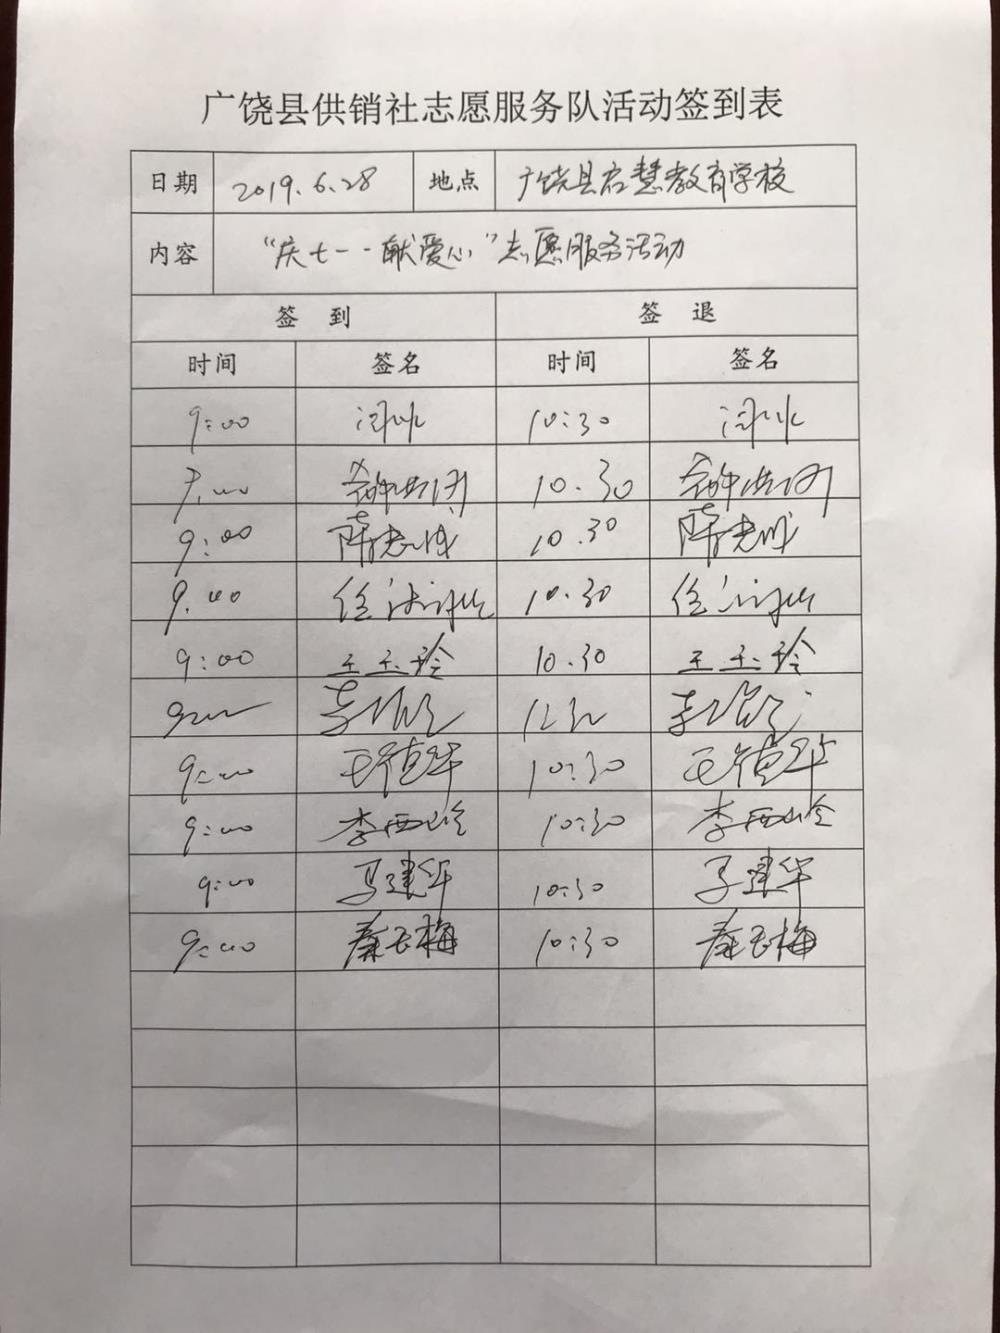 广饶县供销社志愿服务队活动签到表
日期 2019.6.28 地点 广饶县启慧教育学校
内容 “庆七一·献爱心”志愿服务活动
签 到 签 退
时间 签名 时间 签名
9:00 10:30
9:00 10.30
9:00 10.30
9.00 10.30
9:00 王玉玲 10.30 王玉玲
9:00
9:00 王德华 10:30 王德华
9:00 李西岭 10:30 李西岭
9:00 马建华 10:30 马建华
9:00 秦玉梅 10:30 秦玉梅